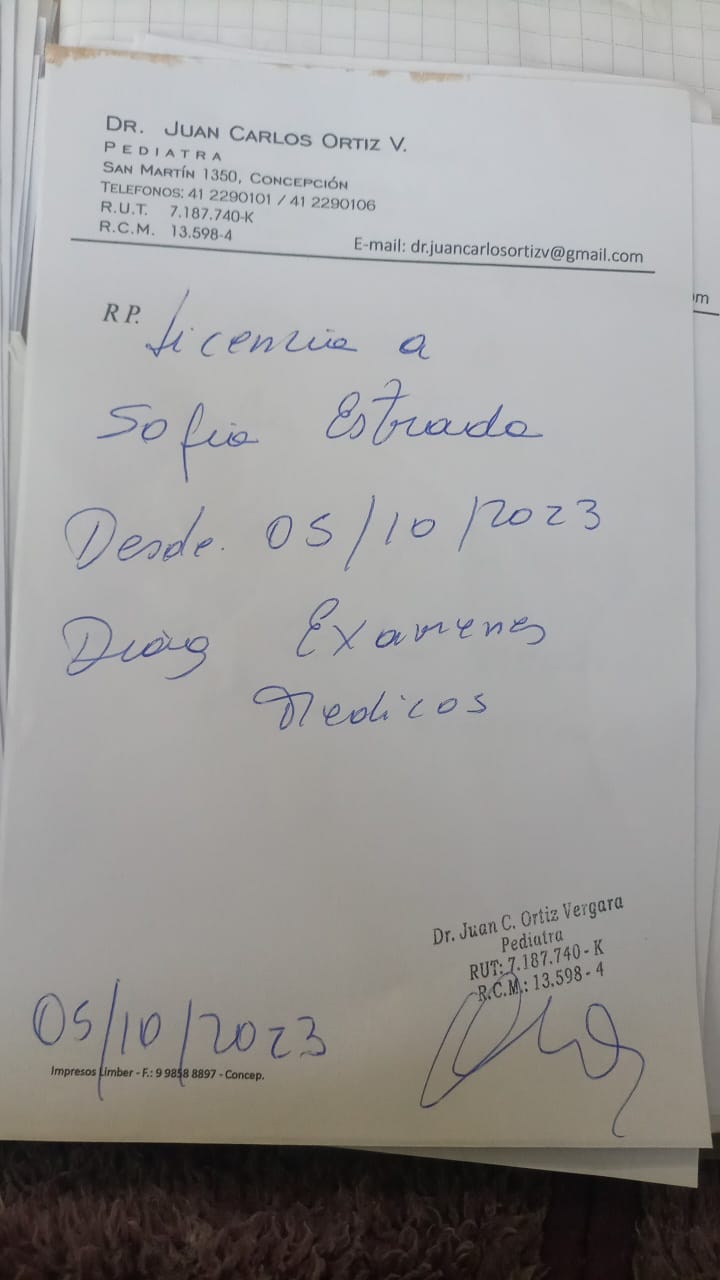 DR. JUAN CARLOS ORTIZ V.
PEDIATRA
SAN MARTÍN 1350, CONCEPCIÓN
TELEFONOS: 41 2290101 / 41 2290106
R.U.T. 7.187.740-K
R.C.M. 13.598-4
E-mail: dr.juancarlosortizv@gmail.com
om
RP. Licencia a
Sofia Estrada
Desde. 05/10/2023
Diag Examenes
Medicos
Dr. Juan C. Ortiz Vergara
Pediatra
RUT: 7.187.740 - K
R.C.M.: 13.598 - 4
05/10/2023
Impresos Limber - F.: 9 9858 8897 - Concep.